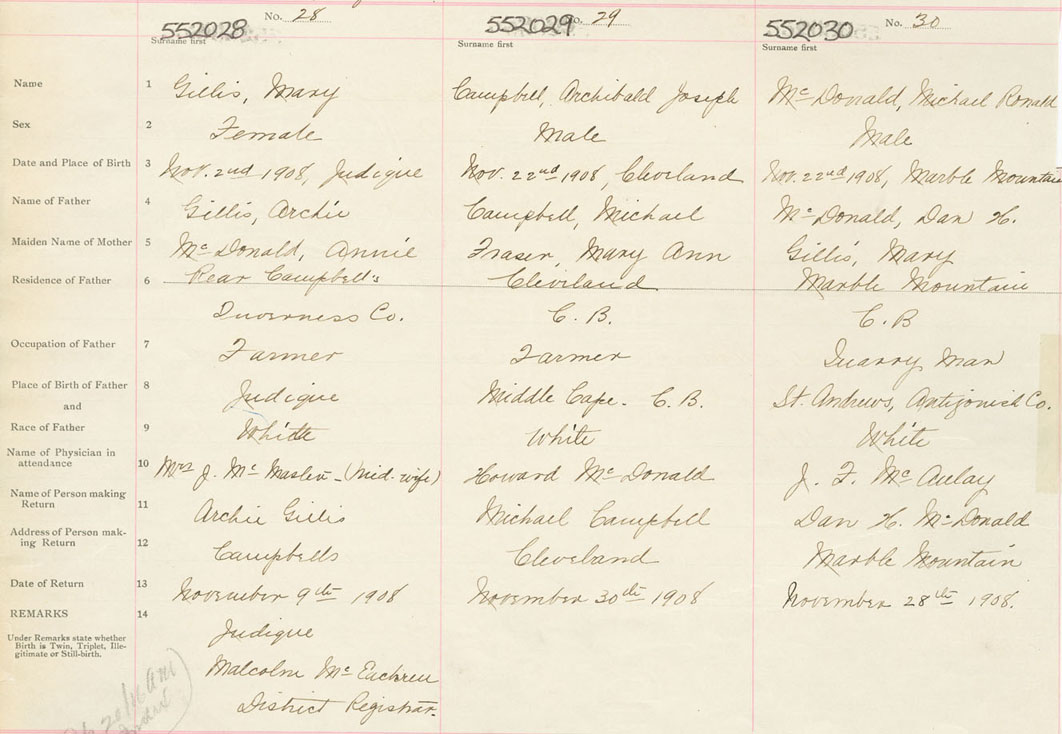 No. 28
552028
Surname first
No. 29
552029
Surname first
No. 30
552030
Surname first
Name 1 Gillis, Mary Campbell, Archibald Joseph Mc Donald, Michael Ronald
Sex 2 Female Male Male
Date and Place of Birth 3 Nov. 2nd 1908, Judique Nov. 22nd 1908, Cleveland Nov. 22nd 1908, Marble Mountain
Name of Father 4 Gillis, Archie Campbell, Michael Mc Donald, Dan H.
Maiden Name of Mother 5 Mc Donald, Annie Fraser, Mary Ann Gillis, Mary
Residence of Father 6 Rear Campbell's Cleveland Marble Mountain
Inverness Co. C. B. C. B
Occupation of Father 7 Farmer Farmer Quarry Man
Place of Birth of Father 8 Judique Middle Cape. C. B. St. Andrews, Antigonish Co.
and
Race of Father 9 White White White
Name of Physician in
attendance 10 Mrs J. Mc Master - (Mid. wife) Howard Mc Donald J. F. Mc Aulay
Name of Person making
Return 11 Archie Gillis Michael Campbell Dan H. Mc Donald
Address of Person mak-
ing Return 12 Campbells Cleveland Marble Mountain
Date of Return 13 November 9th 1908 November 30th 1908 November 28th 1908.
REMARKS 14
Under Remarks state whether
Birth is Twin, Triplet, Ille-
gitimate or Still-birth.
Judique
Malcolm Mc Eachren
District Registrar.